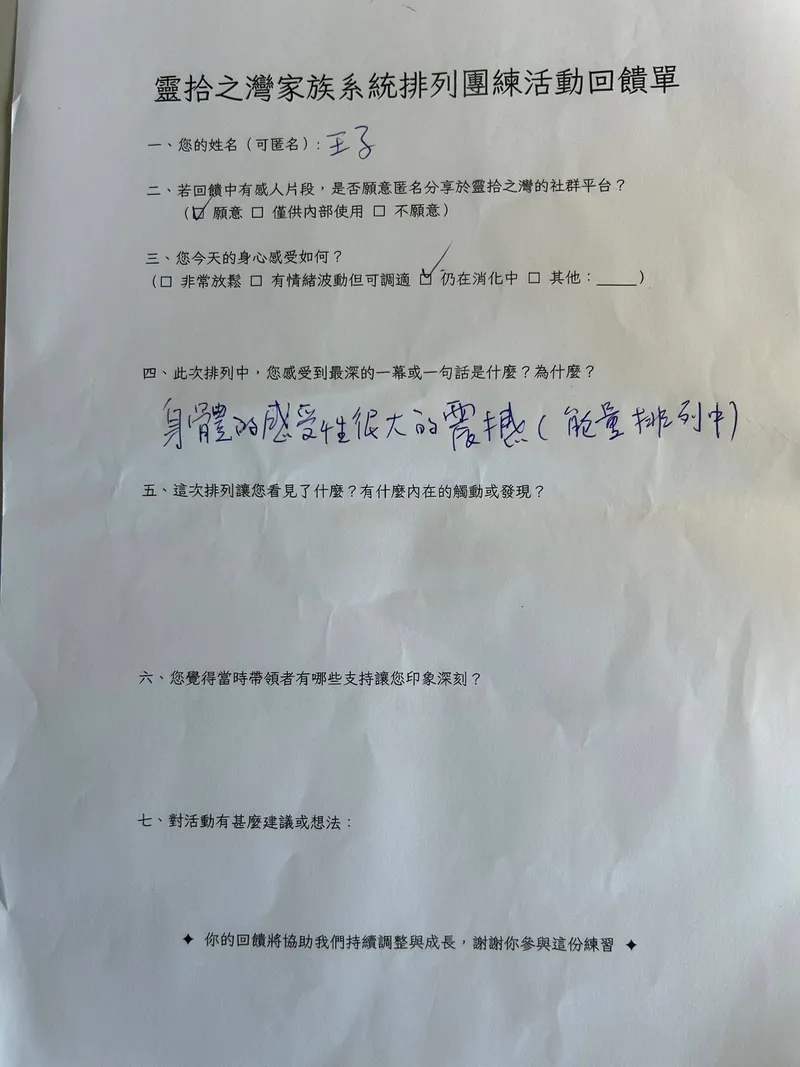 靈拾之灣家族系統排列團練活動回饋單
一、您的姓名（可匿名）: 王子
二、若回饋中有感人片段，是否願意匿名分享於靈拾之灣的社群平台？
（☑ 願意 ☐ 僅供內部使用 ☐ 不願意）
三、您今天的身心感受如何？
（☐ 非常放鬆 ☐ 有情緒波動但可調適 ☑ 仍在消化中 ☐ 其他：_____）
四、此次排列中，您感受到最深的一幕或一句話是什麼？為什麼？
身體的感受性很大的震撼（能量排列中）
五、這次排列讓您看見了什麼？有什麼內在的觸動或發現？
六、您覺得當時帶領者有哪些支持讓您印象深刻？
七、對活動有甚麼建議或想法：
✦ 你的回饋將協助我們持續調整與成長，謝謝你參與這份練習 ✦